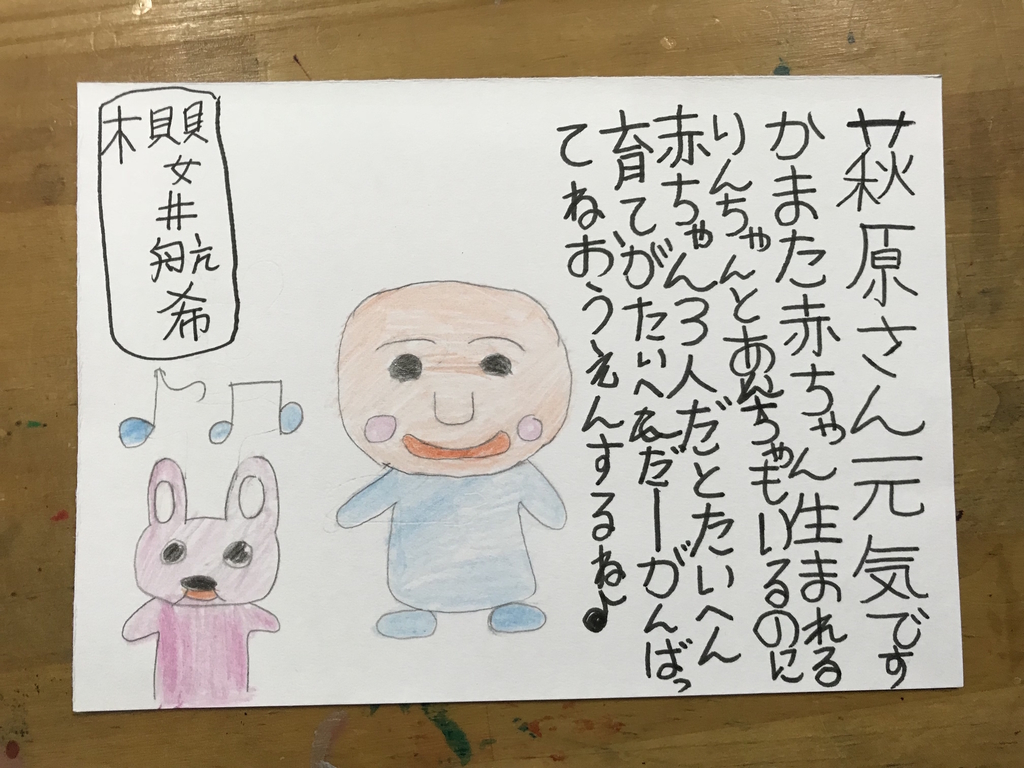 萩原さん元気です
かまた赤ちゃん生まれる
りんちゃんとあんちゃもいるのに
赤ちゃん3人だとたいへん
育てがたいへんだーがんばっ
てねおうえんするね♪
櫻井航希